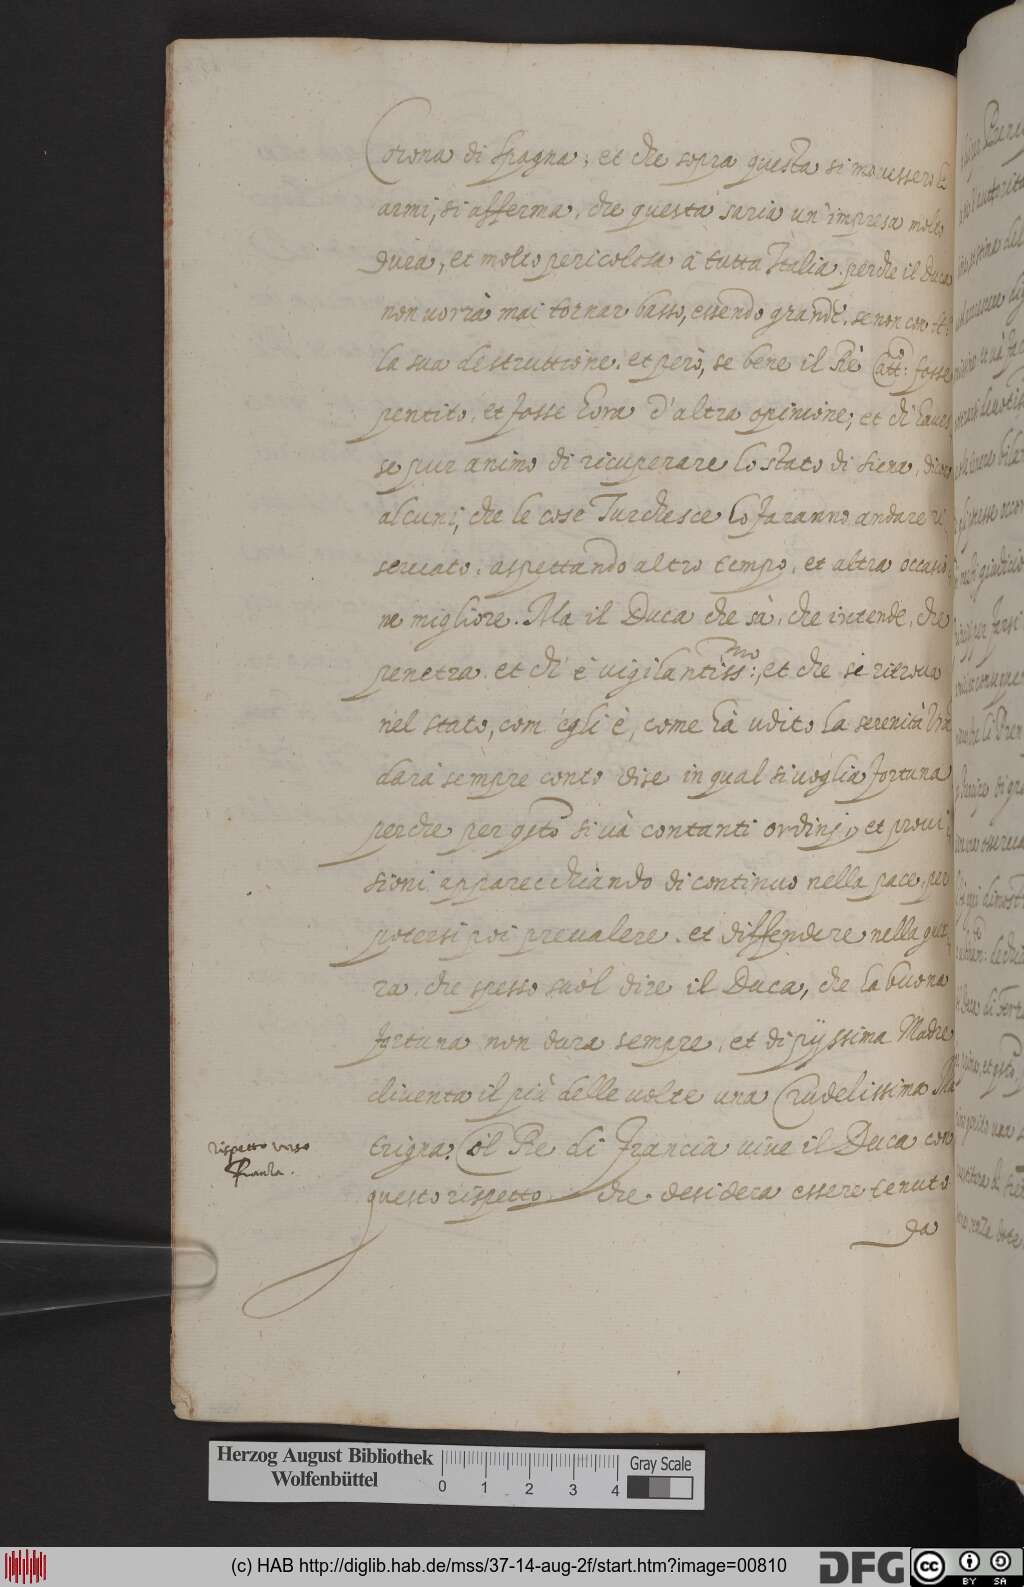 Corona di Spagna, et che sopra questa si mouessero le
armi, si afferma, che questa saria un'impresa molto
dura, et molto pericolosa à tutta Italia. perche il Duca
non uorrà mai tornar basso, essendo grande, se non con
la sua destruttione. et però, se bene il Rè Catt.co fosse
pentito, et fosse hora d'altra opinione; et ch' haues
se pur animo di ricuperare lo stato di Siena, dicono
alcuni, che le cose Turchesce lo faranno andare re
seruato, aspettando altro tempo, et altra occasio
ne migliore. Ma il Duca che sà, che intende, che
penetra. et ch' è uigilantiss:mo, et che si ritroua
nel stato, com' egli è, come hà udito la serenità Vra
darà sempre conto di se in qual si uoglia fortuna
perche per qsto si uà con tanti ordini, et proui
sioni apparecchiando di continuo nella pace, per
potersi poi preualere, et diffendere nella guer
ra. che spesso suol dire il Duca, che la buona
fortuna non dura sempre, et di pijssima Madre
diuenta il più delle uolte una Crudelissima Ma
trigna. Col Rè di Francia uiue il Duca con
questo rispetto che desidera essere tenuto
da
rispetto verso
Francia.
Herzog August Bibliothek
Wolfenbüttel
0 1 2 3 4
Gray Scale
(c) HAB http://diglib.hab.de/mss/37-14-aug-2f/start.htm?image=00810
DFG
cc BY SA